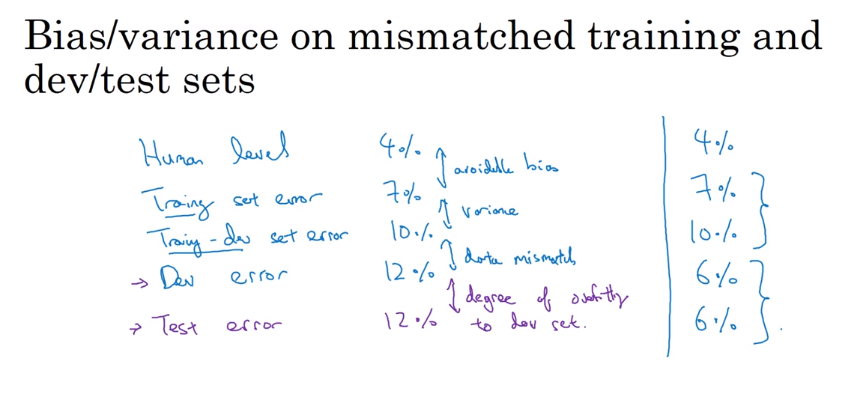 Bias/variance on mismatched training and
dev/test sets
Human level 4% avoidable bias 4%
Training set error 7% variance 7%
Training-dev set error 10% data mismatch 10%
→ Dev error 12% degree of overfitting 6%
→ Test error 12% to dev set. 6%